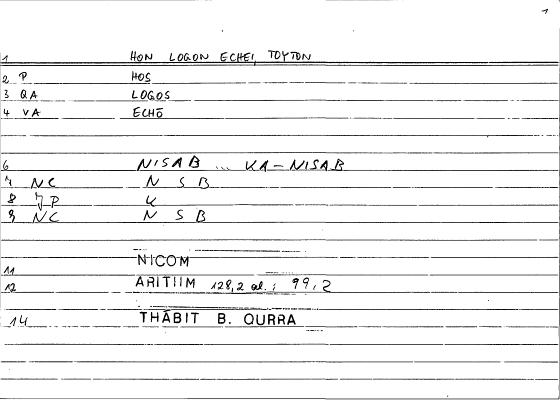 1
1 HON LOGON ECHEI, TOYTON
2 P HOS
3 QA LOGOS
4 VA ECHŌ
6 NISAB ... KA-NISAB
7 NC N S B
8 7P K
9 NC N S B
11 NICOM
12 ARITIIM 128,2 al.; 99,2
14 THĀBIT B. QURRA